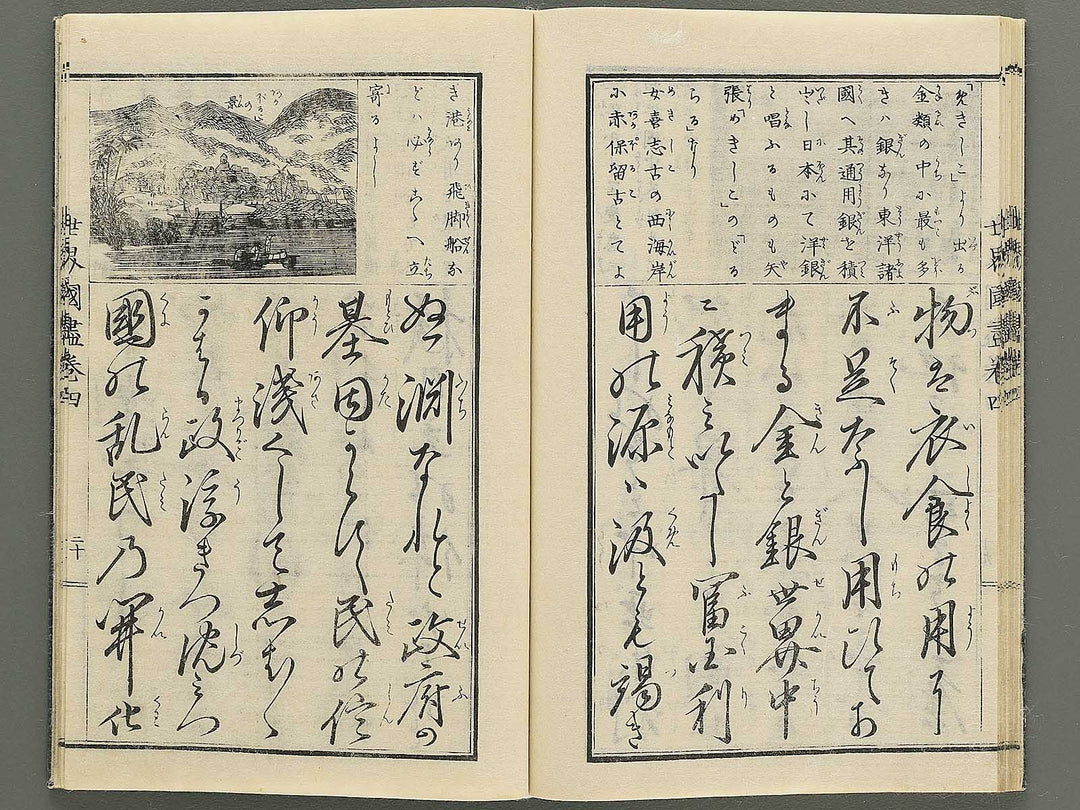 「めきしこ」より出る
金類の中に最も多
きハ銀なり東洋諸
國へ其通用銀を積
出し日本にて洋銀
と唱ふるものも矢
張「めきしこ」の「どる
らる」なり
女喜志古の西海岸
に赤保留古とてよ
物は衣食の用に
不足なし用ひてあ
まる金と銀世界中
に積みいだし冨國利
用の源ハ汲とも竭き
き港あり飛脚船な
どハ必ずこゝへ立
寄るよし
あかぷるこの景
ぬ淵なれど政府の
基因らず民の信
仰浅くして志ば〳〵
かはる政浮きつ沈みつ
國の乱民乃開化
世界國盡卷四
二十
世界國盡卷四